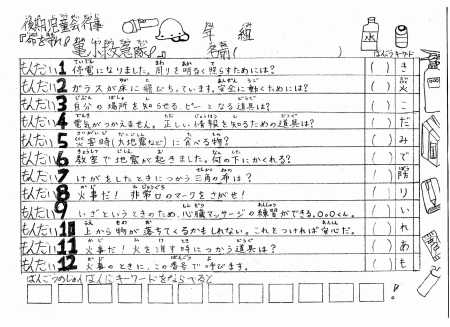 後期児童会行事
『命を守れ！
亀小救急隊』
年 組
名前( )
水
ばんごう キーワード
もんだい1 停電になりました。周りを明るく照らすためには？ ( ) き
もんだい2 ガラスが床に飛びちっています。安全に動くためには？ ( ) ぶ
もんだい3 自分の場所を知らせる、ピーとなる道具は？ ( ) こ
もんだい4 電気がつかえません。正しい情報を知るための道具は？ ( ) だ
もんだい5 災害時(大地震など)に食べる物？ ( ) み
もんだい6 教室で地震が起きました。何の下にかくれる？ ( ) で
もんだい7 けがをしたときにつかう三角の布は？ ( ) 防
もんだい8 火事だ！非常口のマークをさがせ！ ( ) リ
もんだい9 いざというときのため、心臓マッサージの練習ができる。○○くん。 ( ) い
もんだい10 上から物が落ちてくるかもしれない。これをつければ安心だ。 ( ) れ
もんだい11 火事だ！火を消す時につかう道具は？ ( ) あ
もんだい12 火事のときに、この番号で呼びます。 ( ) も
ばんごうのじゅんばんにキーワードをならべると
！